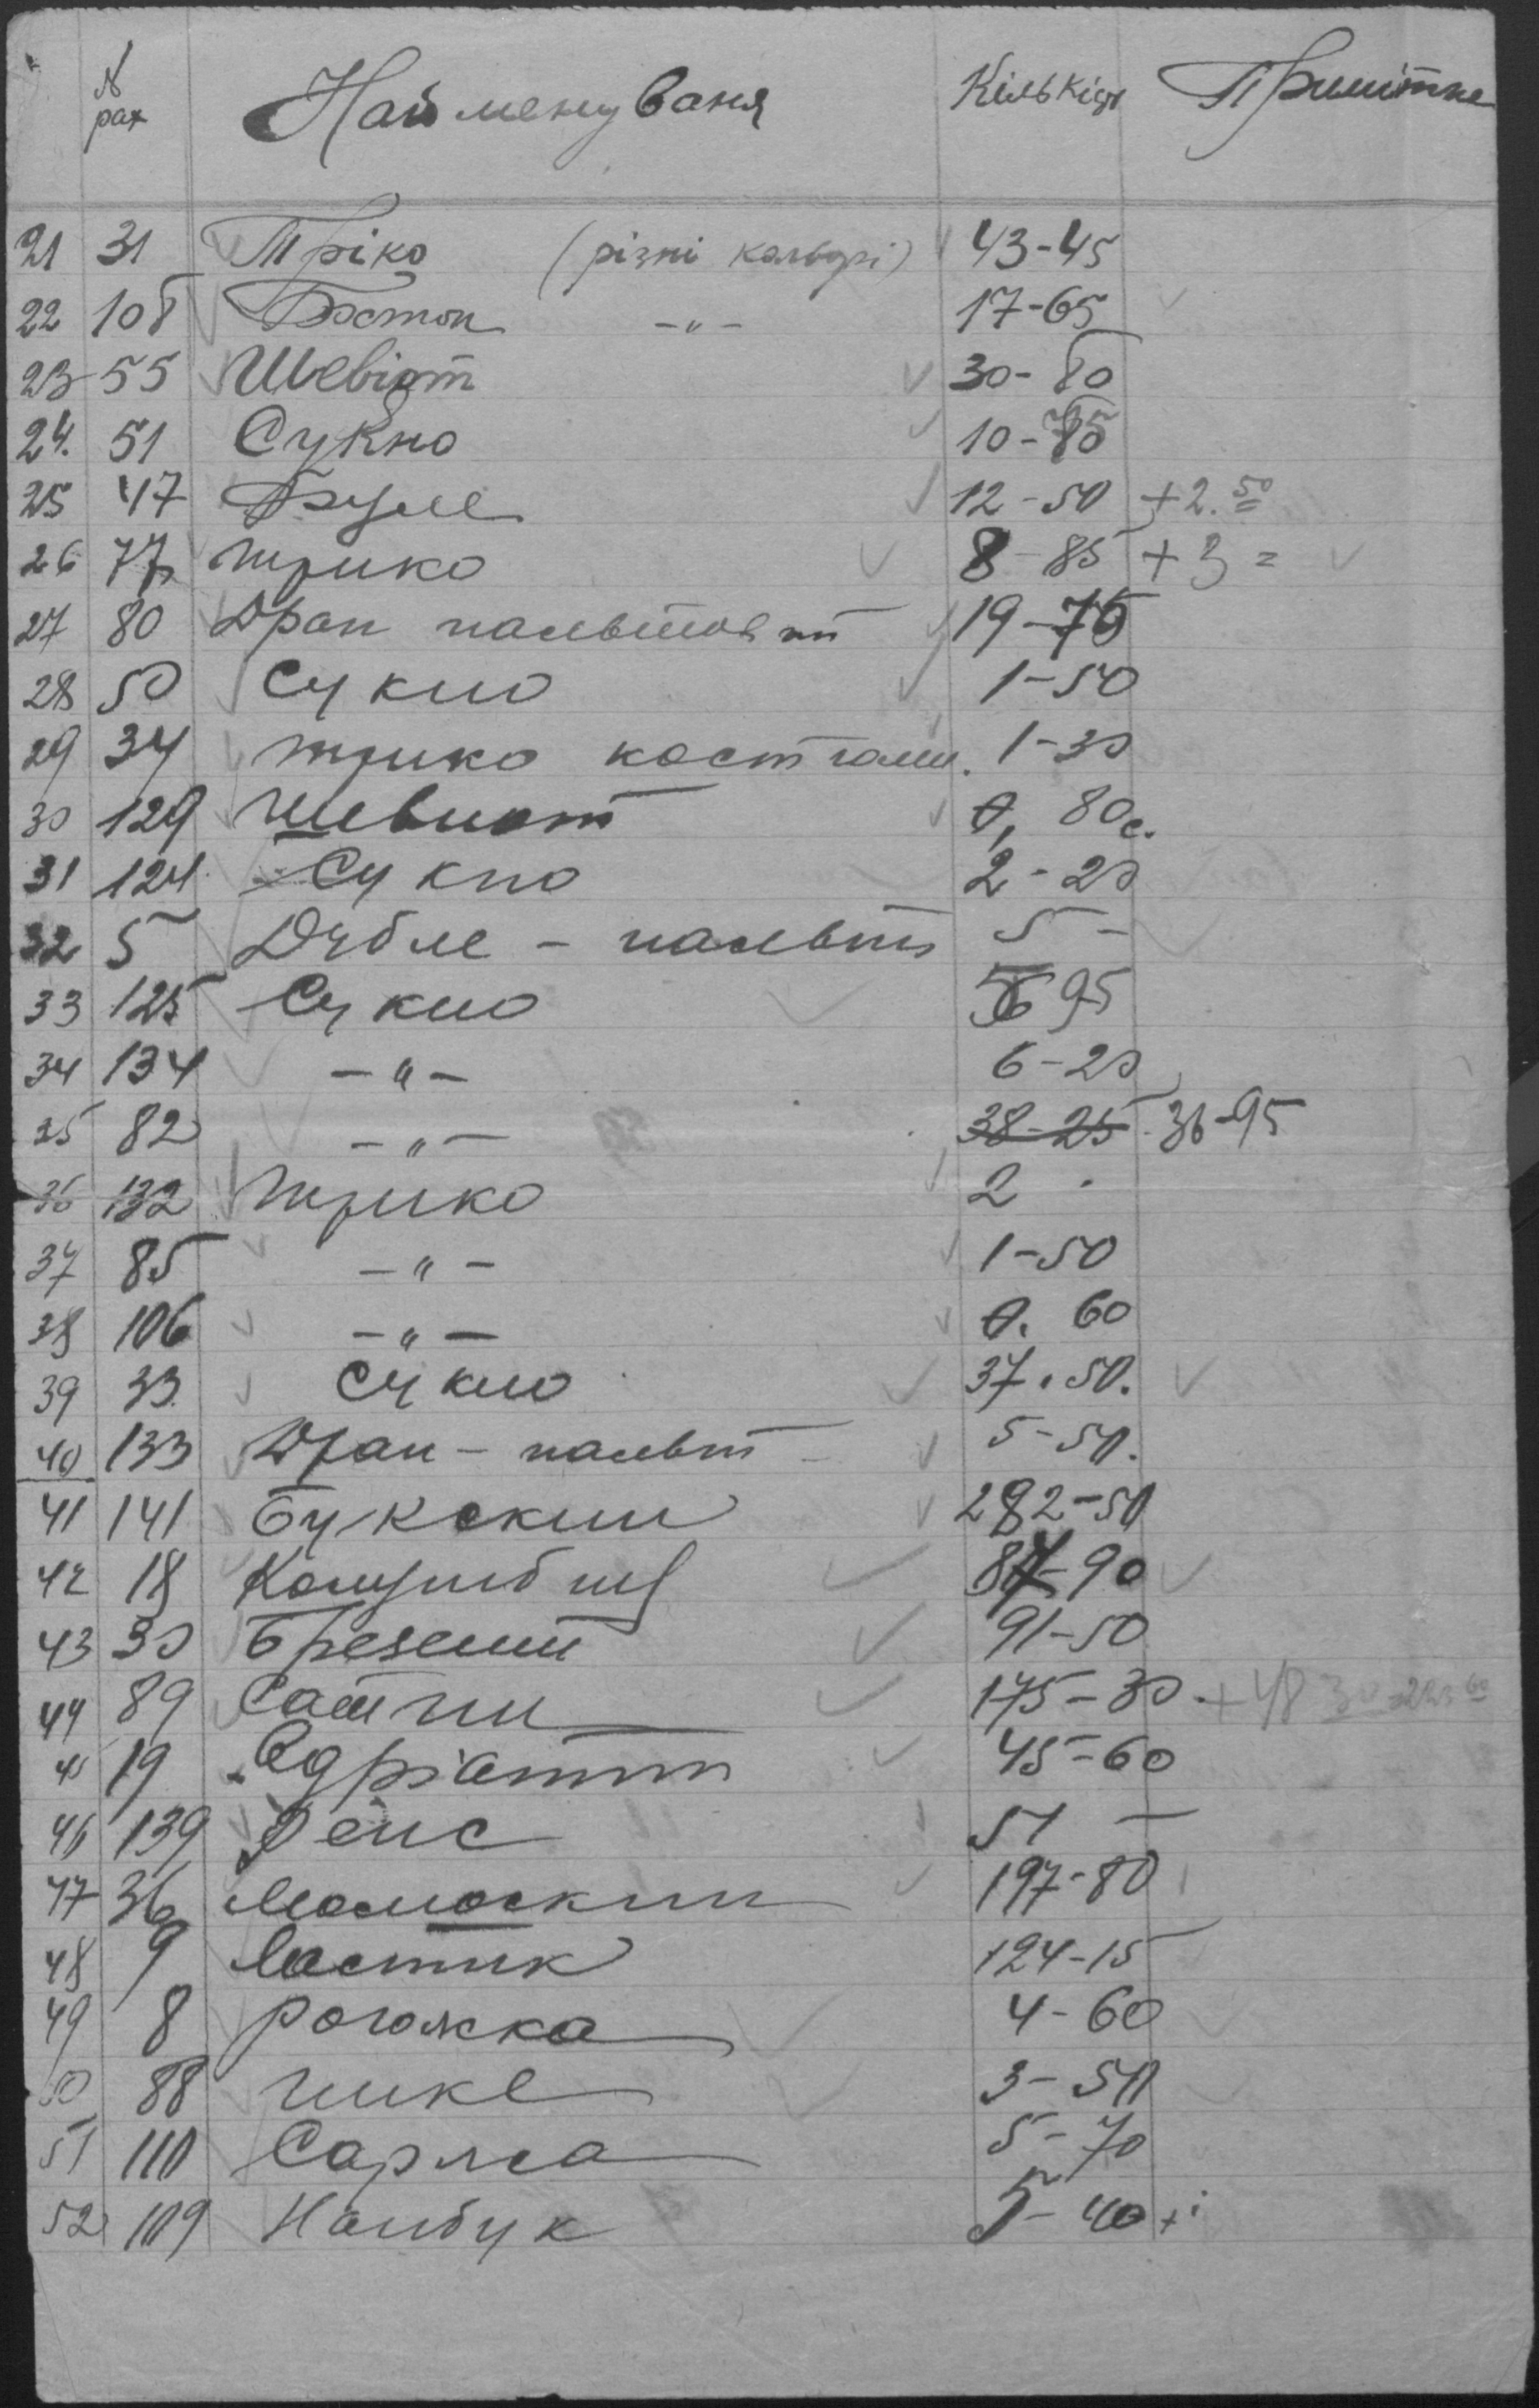 № рах Найменуваня Кількість Примітка
21 31 Тріко (різні кольорі) 43-45
22 108 Бостон -"- 17-65
23 55 Шевіот 30-80
24. 51 Сукно 10-
25 47 12-50 +2.50
26 77 трико 8-85 +3=
27 80 Драп пальтовий 19-75
28 50 Сукно 1-50
29 34 трико костюмн. 1-30
30 129 шевиот 0,80с.
31 124 Сукно 2-20
32 5 Дубле - пальт 5-
33 125 Сукно 95
34 134 -"- 6-20
35 82 -"- 38-25 36-95
36 132 трико 2
37 85 -"- 1-50
38 106 -"- 0.60
39 33 Сукно 37.50.
40 133 Драп - пальт 5-50.
41 141 Букскин 282-50
42 18 -90
43 30 Брезент 91-50
44 89 Сатин 175-30. +48 30
45 19 45-60
46 139 51 -
47 36 Молоскин 197-80
48 9 Ластик 124-15
49 8 рогожка 4-60
50 88 пике 3-50
51 110 Саржа 5-70
52 109 Нанбук 5-40